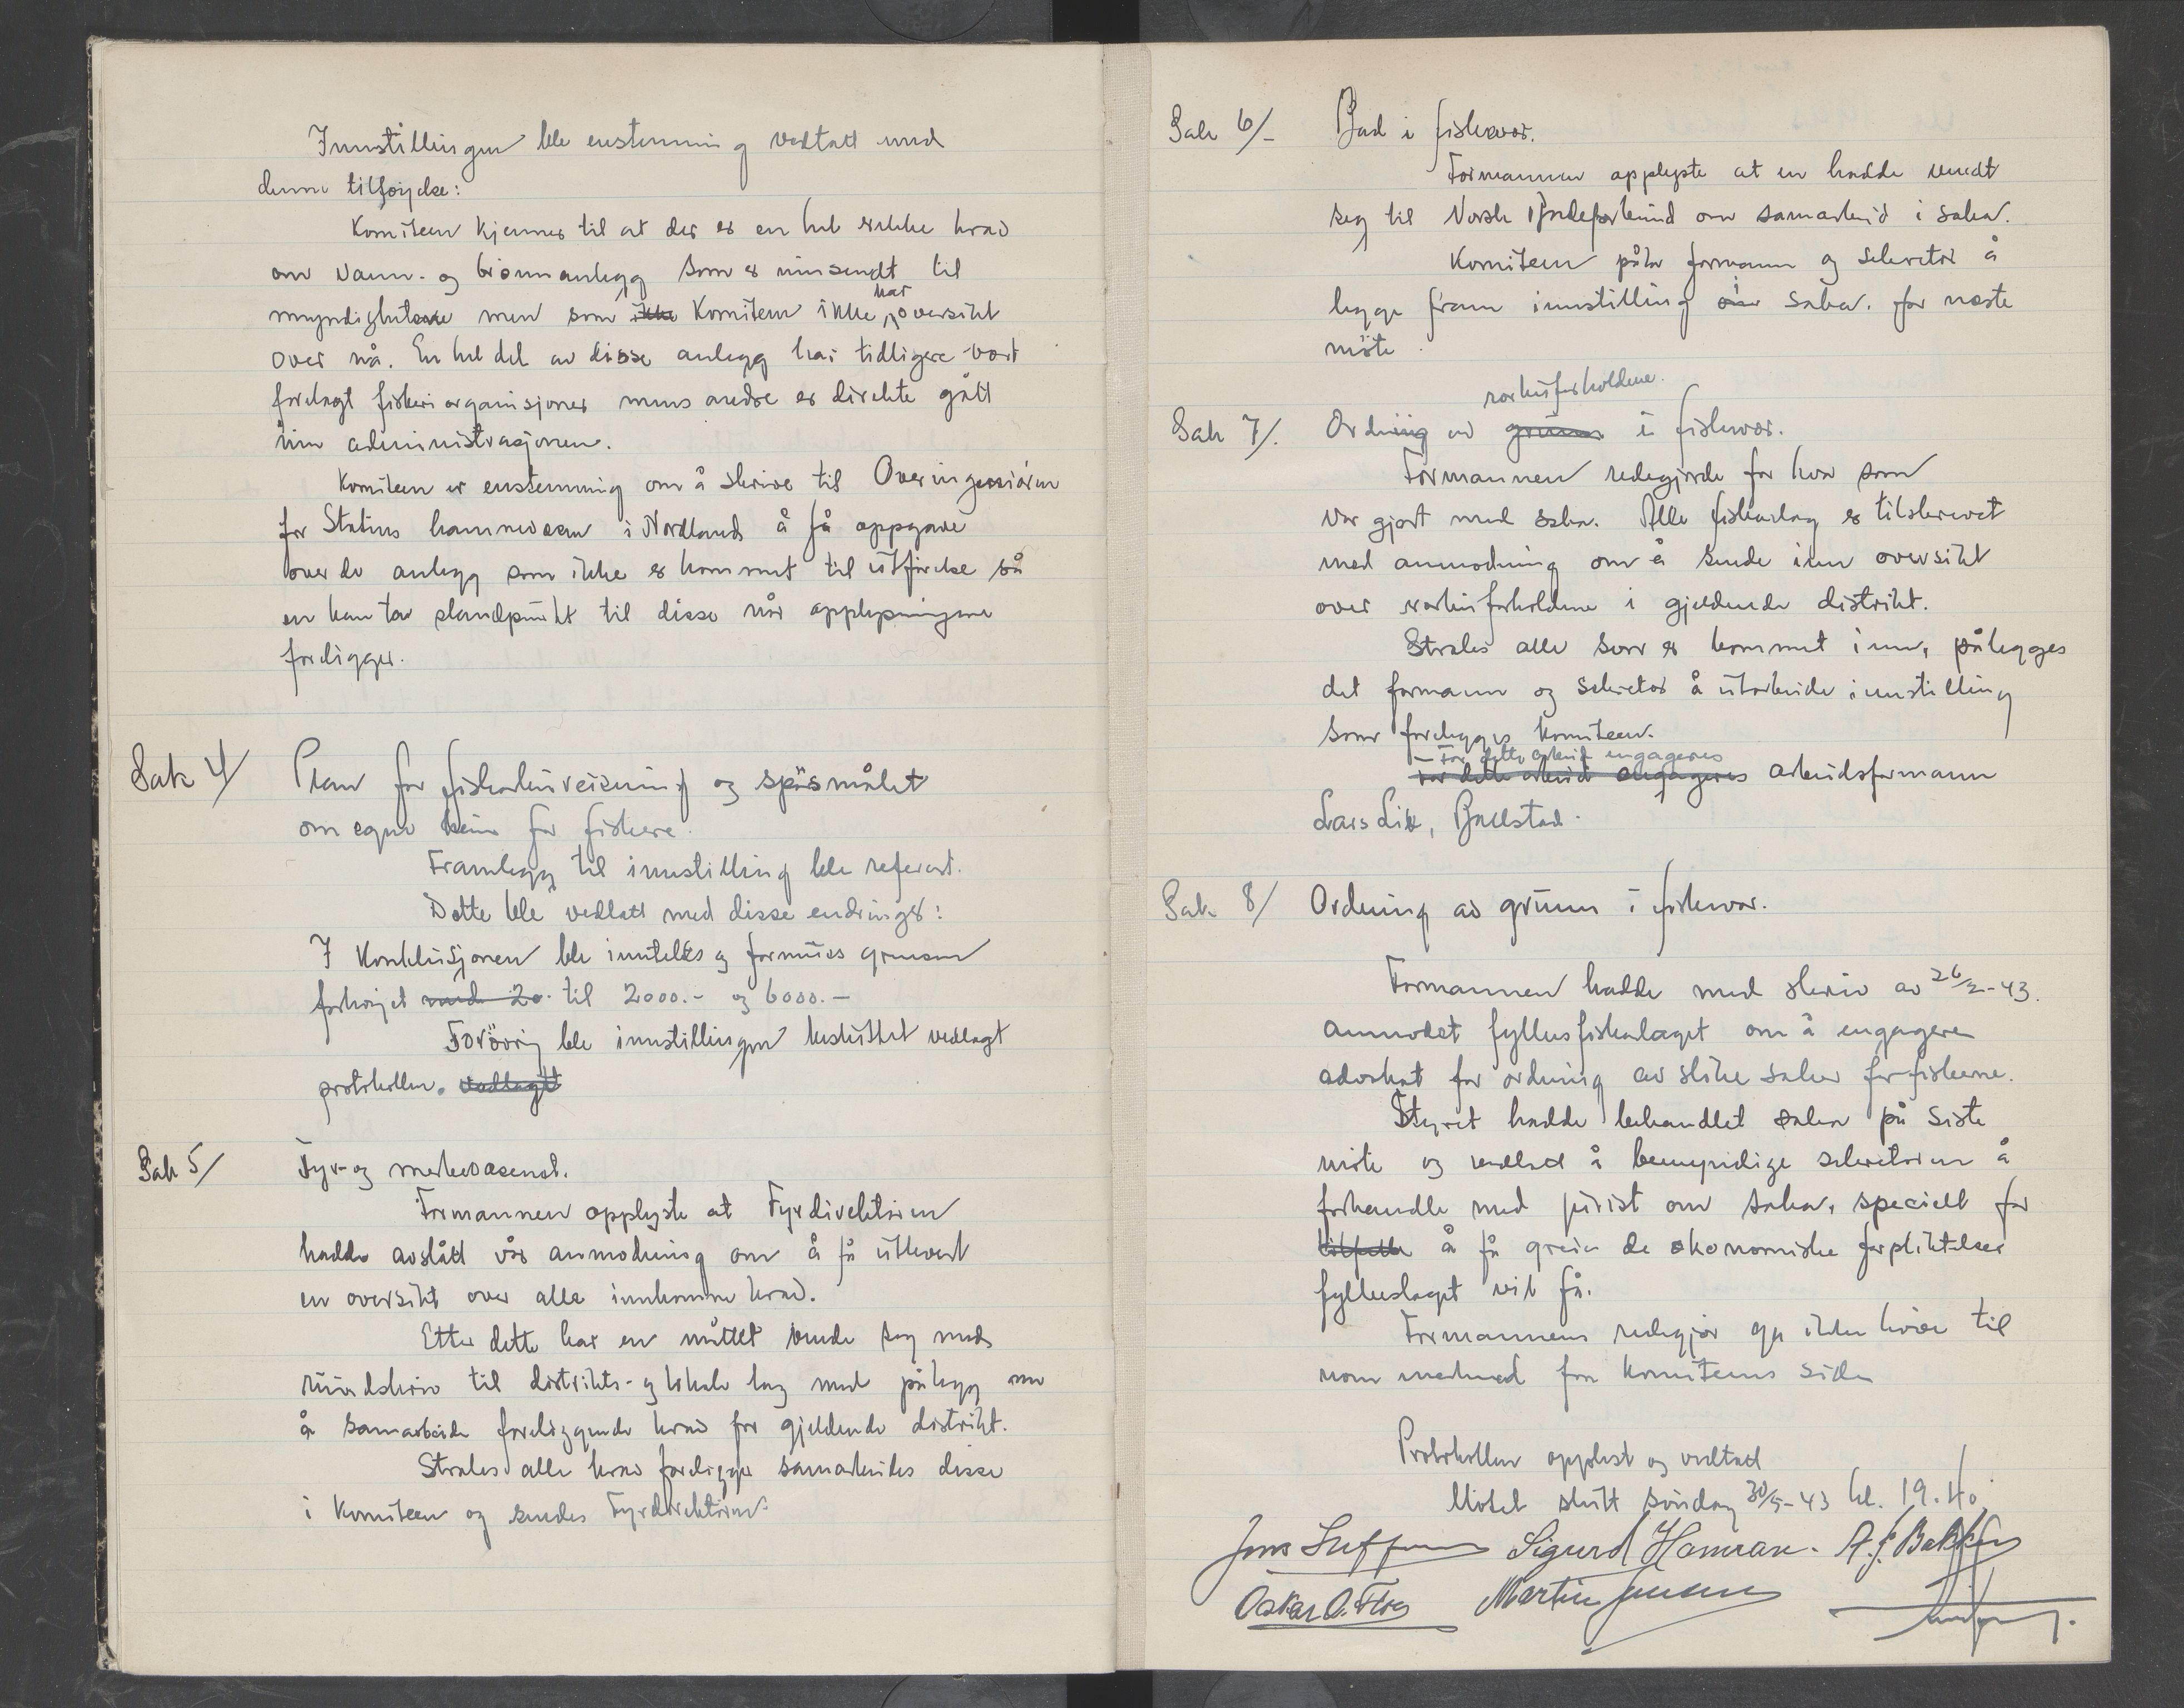 Innstillingen ble enstemmig vedtatt med
denne tilföyelse:
Komiteen kjenner til at der er en hel rekke krav
om vann- og brönnanlegg som er innsendt til
myndighetene men som ikke Komiteen ikke har oversikt
over nå. En hel del av disse anlegg har tidligere vært
forelagt fiskeriorganisjoner mens andre er direkte gått
inn administrasjonen.
Komiteen er enstemmig om å skrive til Overingeniören
for Statens havnevesen i Nordland å få oppgave
over de anlegg som ikke er kommet til utförelse så
en kan ta standpunkt til disse når opplysningene
foreligger.
Sak 4/ Plan for fiskarheimreisning og spörsmålet
om egne heim for fiskere.
Framlegg til innstilling ble referert.
Dette ble vedtatt med disse endringer:
I Konklusjonen ble inntekts og formues grensen
forhöyet med 20. til 2000.- og 6000.-
Forövrig ble innstillingen besluttet vedlagt
protokollen. vedlagt
Sak 5/ Fyr- og merkevæsenet.
Formannen opplyste at Fyrdirektören
hadde avslått vår anmodning om å få utlevert
en oversikt over alle innkomne krav.
Etter dette har en måttet vende seg med
rundskriv til distrikts- og lokale lag med pålegg om
å samarbeide foreliggende krav for gjeldende distrikt.
Straks alle krav foreligger samarbeides disse
i Komiteen og sendes Fyrdirektören.
Sak 6/- Bad i fiskevær.
Formannen opplyste at en hadde vendt
seg til Norsk Badeforbund om samarbeid i saka.
Komiteen påla formann og sekretær å
legge fram innstilling i saka. for neste
möte.
rorbuforholdene.
Sak 7/. Ordning av grunn i fiskevær.
Formannen redegjorde for hva som
var gjort med saka. Alle fiskarlag er tilskrevet
med anmodning om å sende inn oversikt
over rorbuforholdene i gjeldende distrikt.
Straks alle svar er kommet inn, pålegges
det formann og sekretær å utarbeide innstilling
som forelegges komiteen.
- For dette arbeid engageres
For dette arbeid engageres arbeidsformann
Lars Lie, Ballstad.
Sak 8/ Ordning av grunn i fiskevær.
Formannen hadde med skriv av 26/2-43.
anmodet fylkesfiskarlaget om å engagere
advokat for ordning av slike saker for fiskerne.
Styret hadde behandlet saka på siste
möte og vedtatt å bemyndige sekretæren å
forhandle med jurist om saka, specielt for
tilfelle å få greie de økonomiske forpliktelser
fylkeslaget vil få.
Formannens redegjör ga ikke höve til
noen merknad fra komiteens side
Protokollen opplest og vedtatt
Mötet slutt söndag 30/5-43 kl. 19.40.
Sigurd Hamran. A. J. Bakken
Martin Jensen